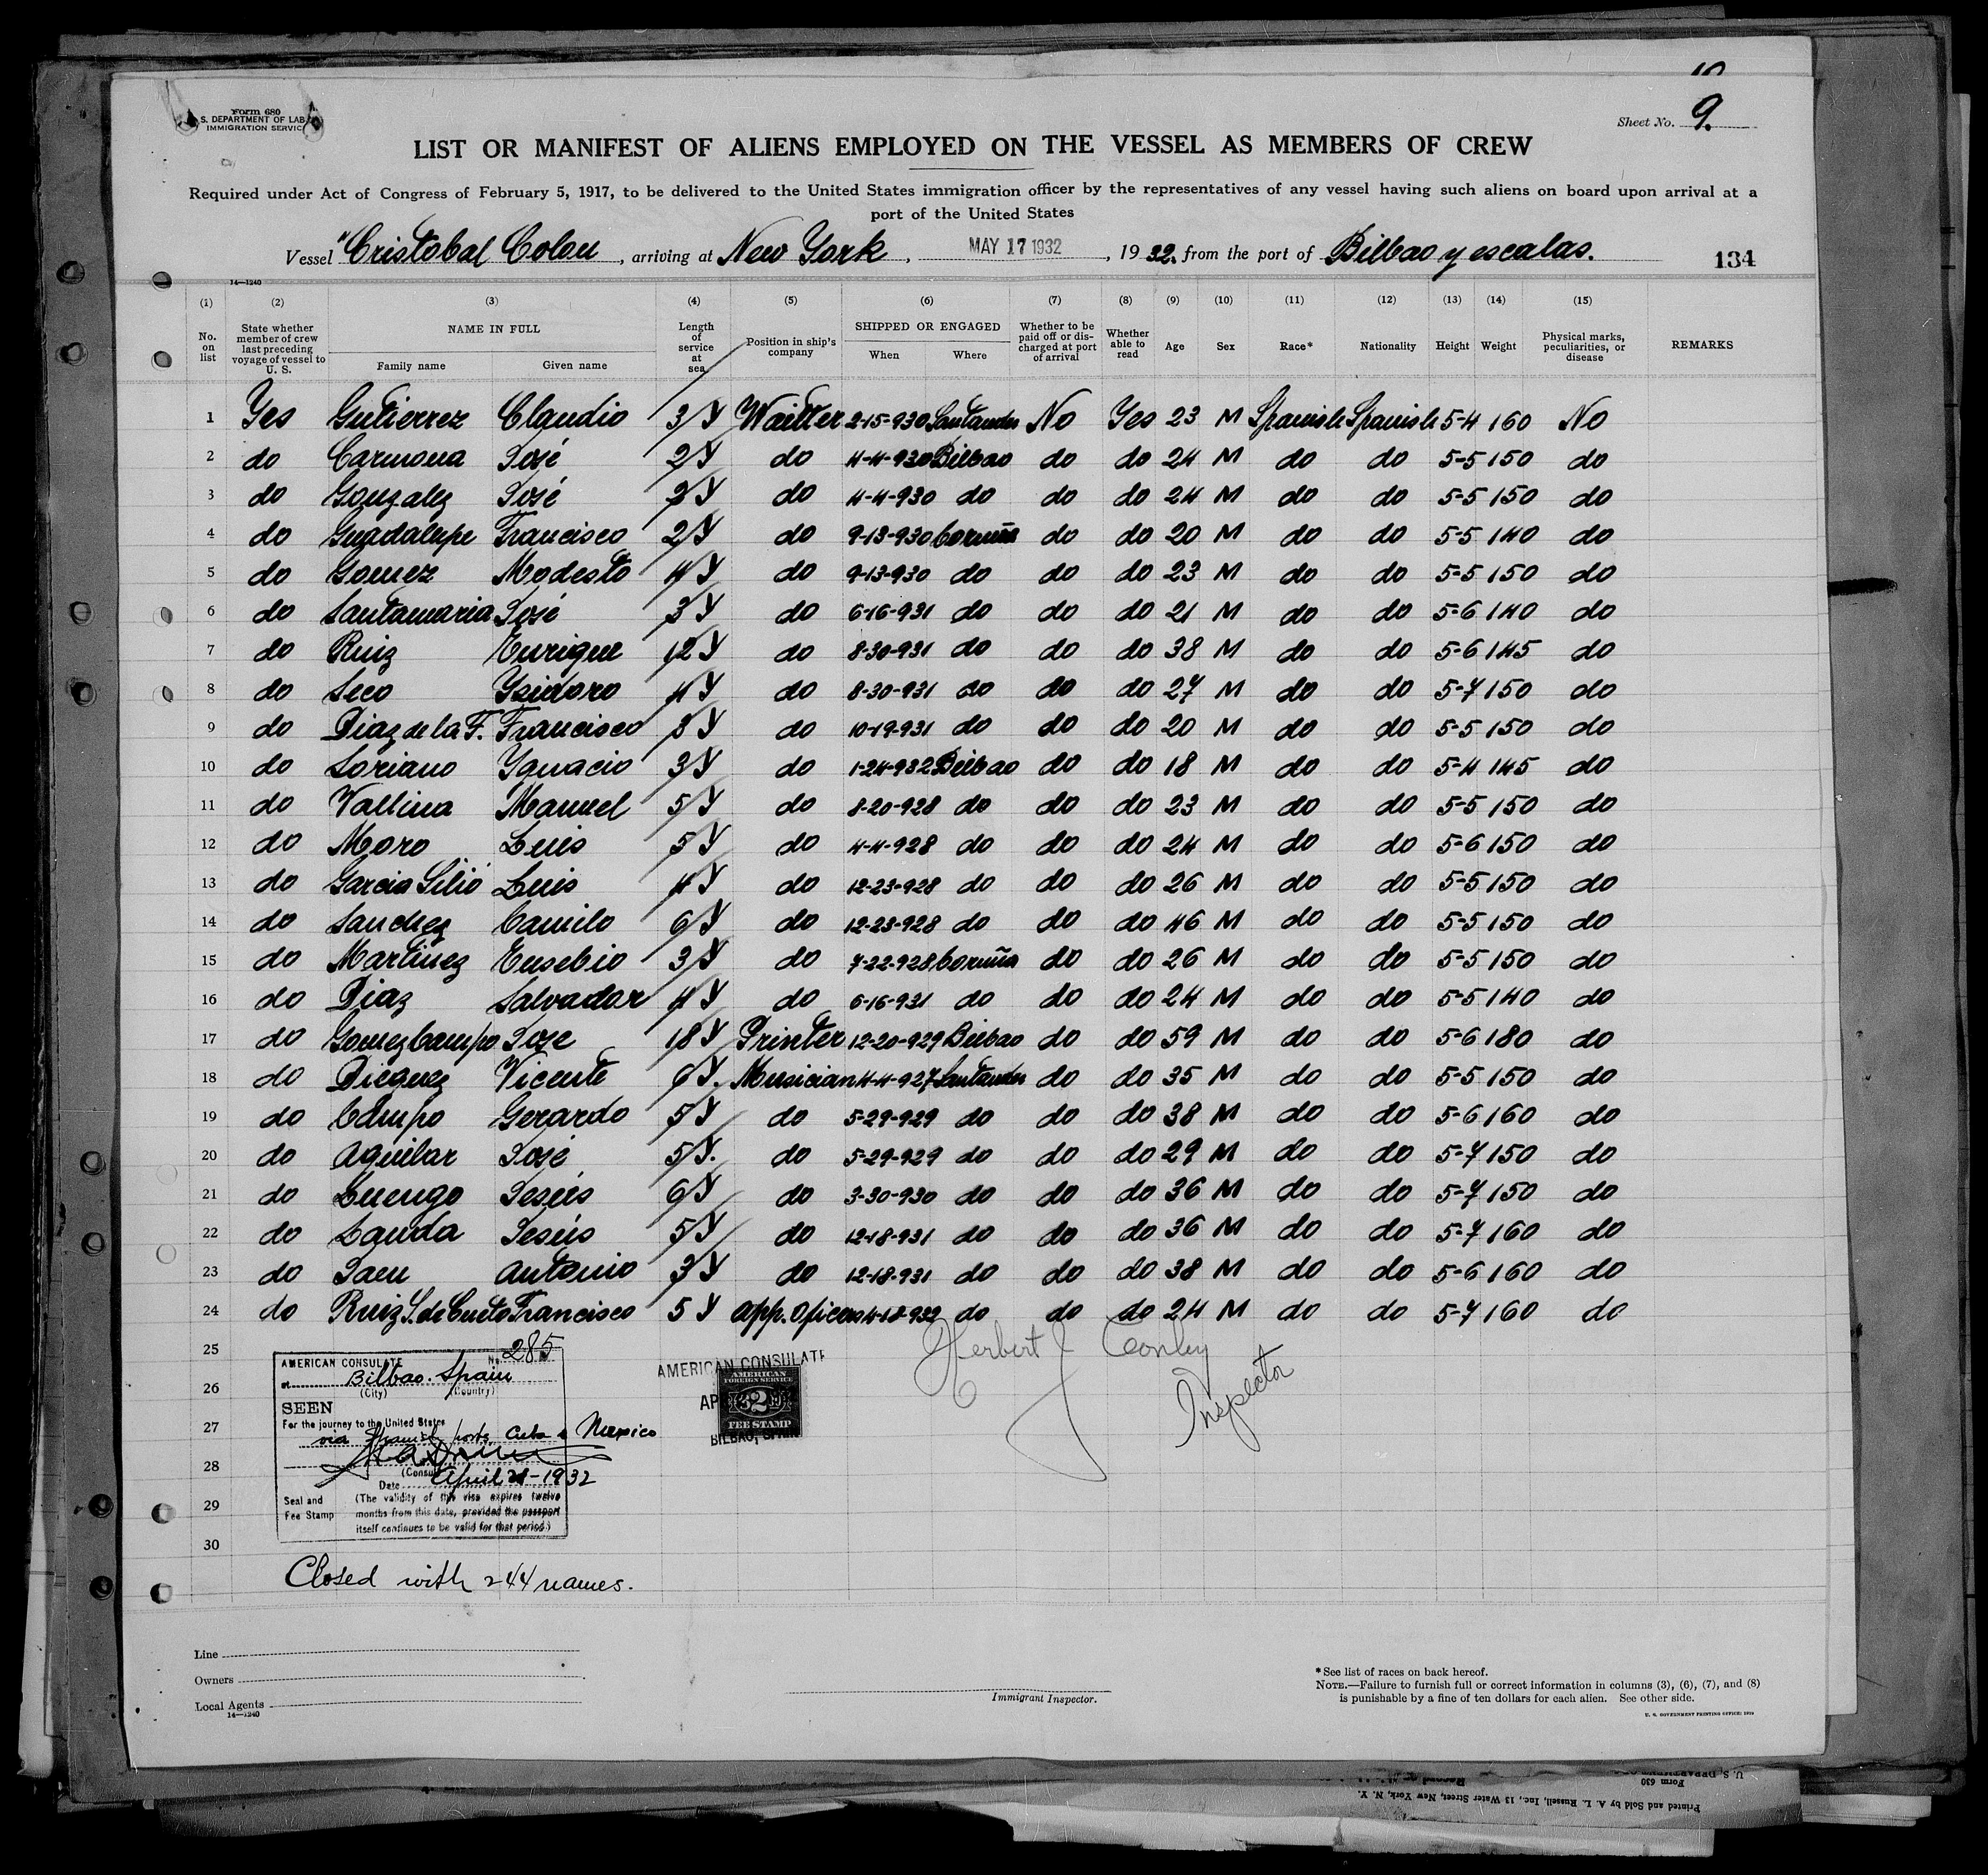 10
Form 680
S. DEPARTMENT OF LAB
IMMIGRATION SERVIC
Sheet No. 9.
LIST OR MANIFEST OF ALIENS EMPLOYED ON THE VESSEL AS MEMBERS OF CREW
Required under Act of Congress of February 5, 1917, to be delivered to the United States immigration officer by the representatives of any vessel having such aliens on board upon arrival at a
port of the United States
Vessel "Cristobal Colon, arriving at New York, MAY 17 1932, 1932. from the port of Bilbao y escalas. 134
14—1240
(1) (2) (3) (4) (5) (6) (7) (8) (9) (10) (11) (12) (13) (14) (15)
No. on list State whether member of crew last preceding voyage of vessel to U. S. NAME IN FULL Family name Given name Length of service at sea Position in ship's company SHIPPED OR ENGAGED When Where Whether to be paid off or discharged at port of arrival Whether able to read Age Sex Race* Nationality Height Weight Physical marks, peculiarities, or disease REMARKS
1 Yes Gutierrez Claudio 3 Y Waitter 2-15-930 Santander No Yes 23 M Spanish Spanish 5-4 160 No
2 do Carmona José 2 Y do 4-4-930 Bilbao do do 24 M do do 5-5 150 do
3 do Gonzalez José 2 Y do 4-4-930 do do do 24 M do do 5-5 150 do
4 do Guadalupe Francisco 2 Y do 9-13-930 Coruña do do 20 M do do 5-5 140 do
5 do Gomez Modesto 4 Y do 9-13-930 do do do 23 M do do 5-5 150 do
6 do Santamaria José 3 Y do 6-16-931 do do do 21 M do do 5-6 140 do
7 do Ruiz Enrique 12 Y do 8-30-931 do do do 38 M do do 5-6 145 do
8 do Seco Ysidoro 4 Y do 8-30-931 do do do 27 M do do 5-7 150 do
9 do Diaz de la F. Francisco 3 Y do 10-19-931 do do do 20 M do do 5-5 150 do
10 do Soriano Ygnacio 3 Y do 1-24-932 Bilbao do do 18 M do do 5-4 145 do
11 do Vallina Manuel 5 Y do 8-20-928 do do do 23 M do do 5-5 150 do
12 do Moro Luis 5 Y do 4-4-928 do do do 24 M do do 5-6 150 do
13 do Garcia Silió Luis 4 Y do 12-23-928 do do do 26 M do do 5-5 150 do
14 do Sanchez Camilo 6 Y do 12-23-928 do do do 46 M do do 5-5 150 do
15 do Martinez Eusebio 3 Y do 7-22-928 Coruña do do 26 M do do 5-5 150 do
16 do Diaz Salvador 4 Y do 6-16-931 do do do 24 M do do 5-5 140 do
17 do Gomez Campo Jose 18 Y Printer 12-20-929 Bilbao do do 59 M do do 5-6 180 do
18 do Dieguez Vicente 6 Y. Musician 4-4-927 Santander do do 35 M do do 5-5 150 do
19 do Campo Gerardo 5 Y do 5-29-929 do do do 38 M do do 5-6 160 do
20 do Aguilar José 5 Y. do 5-29-929 do do do 29 M do do 5-7 150 do
21 do Luengo Jesús 6 Y do 3-30-930 do do do 36 M do do 5-7 150 do
22 do Landa Jesús 5 Y do 12-18-931 do do do 36 M do do 5-7 160 do
23 do Jaen Antonio 3 Y do 12-18-931 do do do 38 M do do 5-6 160 do
24 do Ruiz S. de Cueto Francisco 5 Y App. Oficers 4-18-932 do do do 24 M do do 5-7 160 do
25
26
27
28
29
30
Herbert J Conley
Inspector
AMERICAN CONSULATE No. 285
at Bilbao. Spain
(City) (Country)
SEEN
For the journey to the United States
via Spanish ports, Cuba & Mexico
(Consul
Date April 21-1932
Seal and Fee Stamp
(The validity of this visa expires twelve
months from this date, provided the passport
itself continues to be valid for that period.)
AMERICAN CONSULATE
AP
AMERICAN
FOREIGN SERVICE
2
FEE STAMP
BILBAO, SPAIN
Closed with 244 names.
Line
Owners
Local Agents
14—1240
Immigrant Inspector.
* See list of races on back hereof.
NOTE.—Failure to furnish full or correct information in columns (3), (6), (7), and (8)
is punishable by a fine of ten dollars for each alien. See other side.
U. S. GOVERNMENT PRINTING OFFICE:
U. S. DEPARTMENT
Form 630
Printed and Sold by A. L. Russell, Inc., 13 Water Street, New York, N. Y.